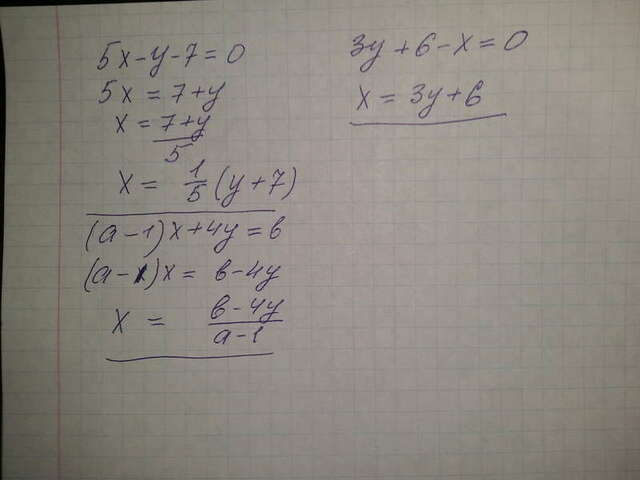 5x-y-7=0
5x = 7+y
x = 7+y
5
x = 1/5 (y+7)
(a-1)x+4y=b
(a-1)x = b-4y
x = b-4y
a-1
3y+6-x=0
x = 3y+6